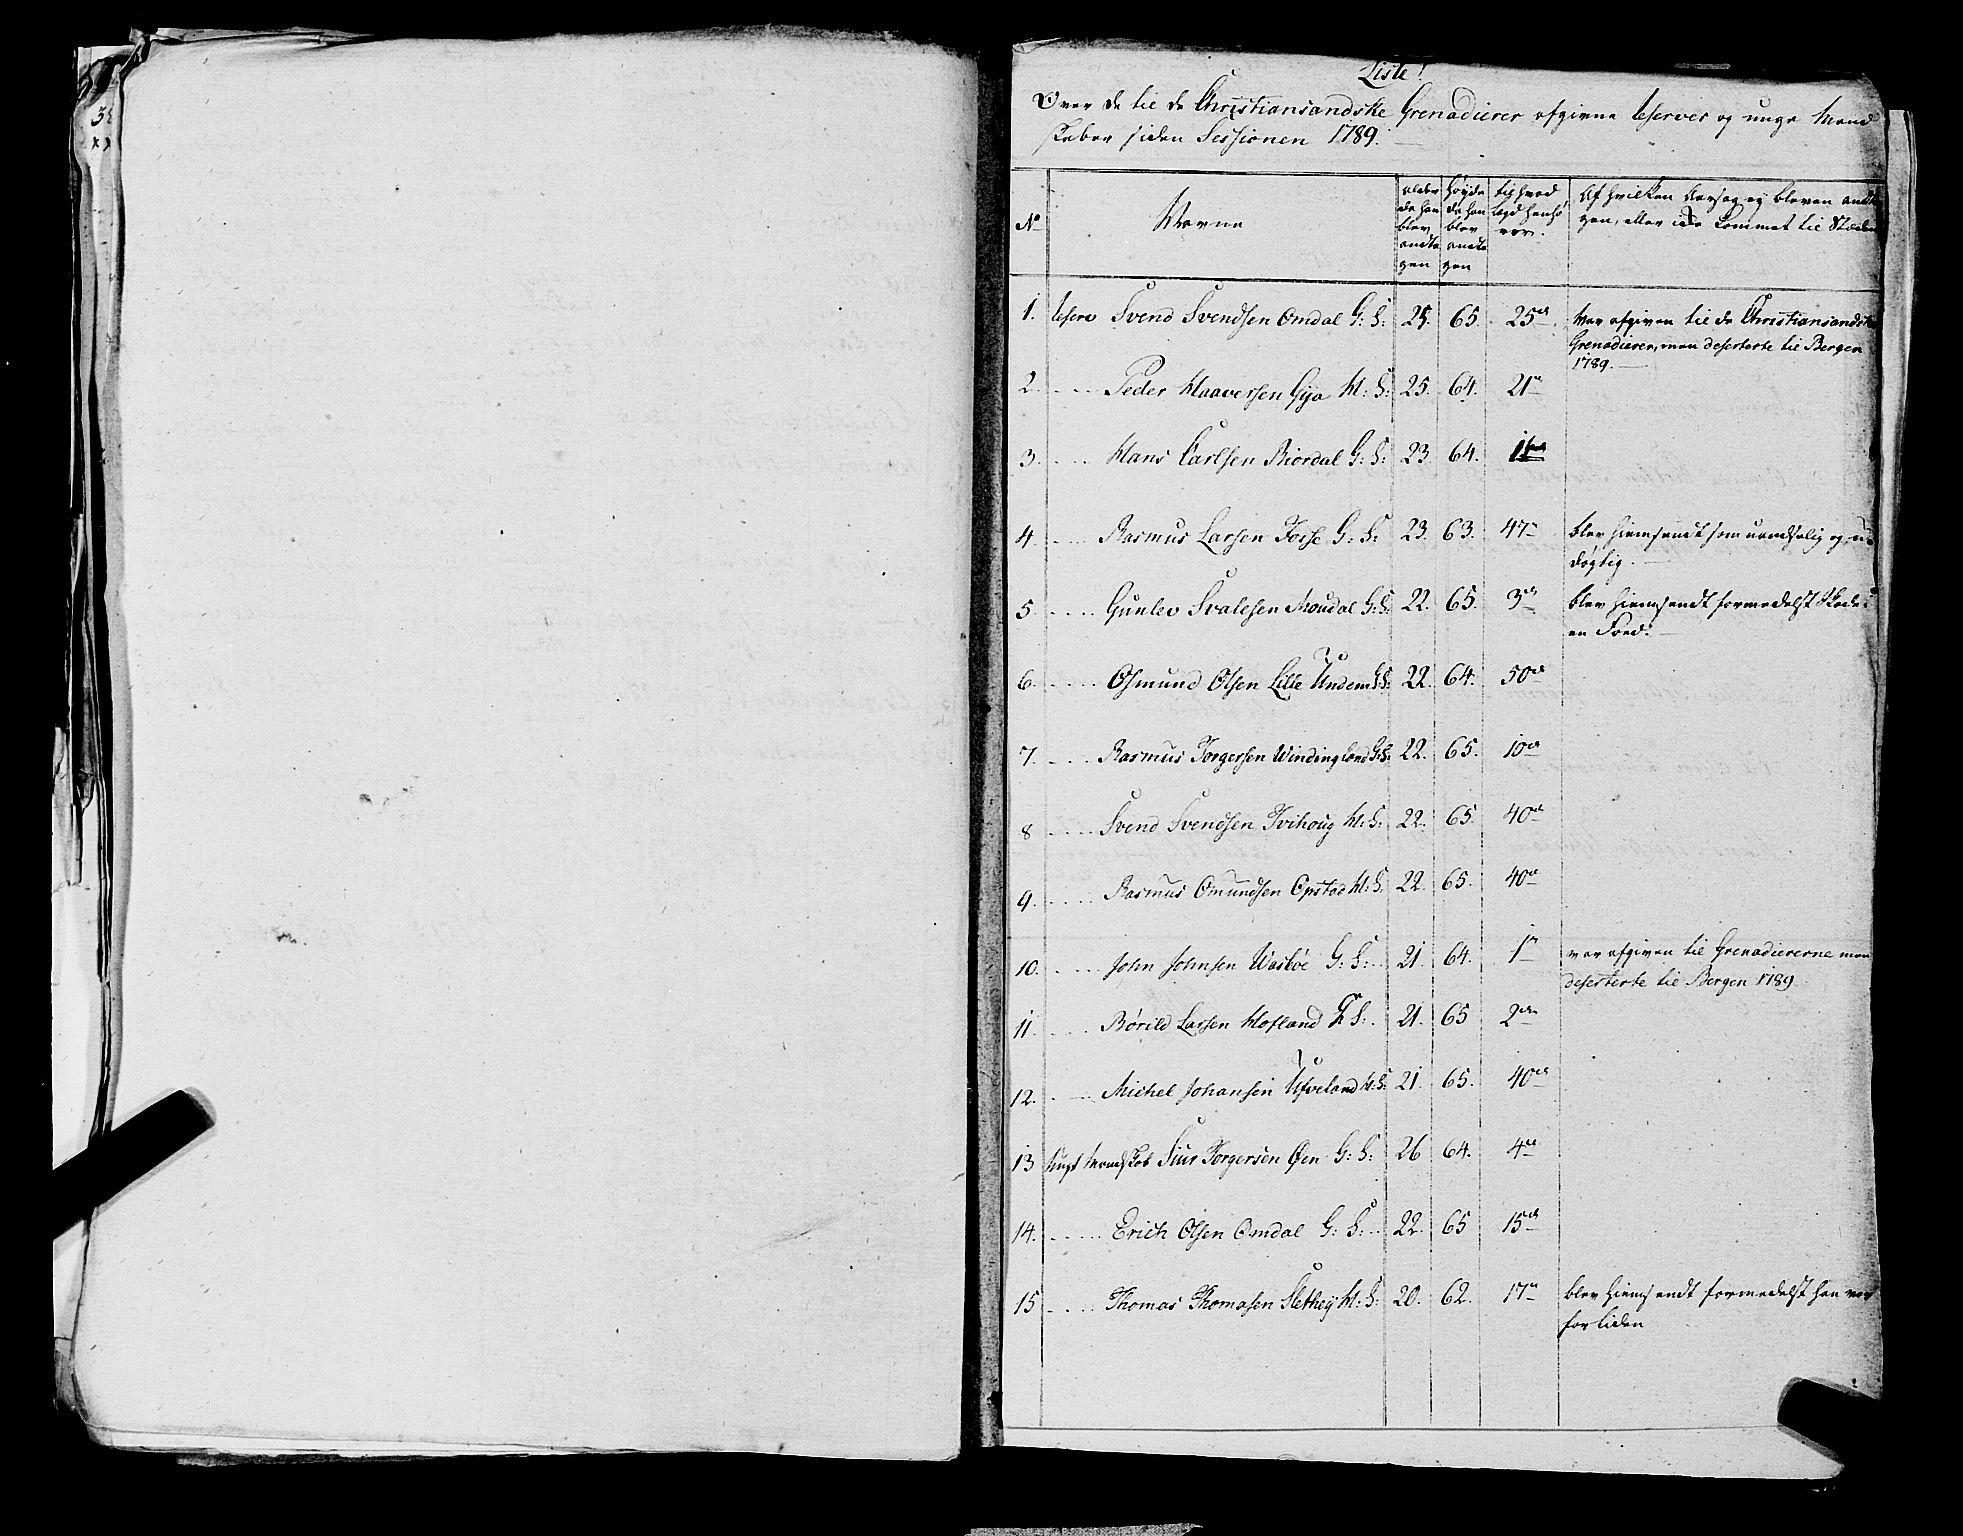 Liste!
Over de til de Christiansandske Grenadierer afgivne Reserver og unge Mand
skaber siden Sessionen 1789.
No
Navne
alder de han blev andta gen
Høyde de han blev andta gen
til hvad Lægd henhø rer.
Af hvilken Aarsag ey bleven andta
gen, eller icke kommet til Stæden
1. Reserv Svend Svendsen Omdal G: S: 25. 65. 25de Var afgiven til de Christiansandske
Grenadierer, men deserterte til Bergen
1789.
2. Peder Haaversen Gya H: S: 25. 64. 21
3. Hans Carlsen Riordal G: S: 23 64.
4. Rasmus Larsen Forse G: S: 23. 63. 47 blev hiemsendt som uandselig og u-
døgtig.
5. Gunlev Svalesen Moudal G: S: 22. 65. 3de blev hiemsendt formedelst Skade i
en Foed.
6. Osmund Olsen Lille Undem G: S: 22. 64. 50de
7. Rasmus Torgersen Windingland G: S: 22. 65. 10de
8 Svend Svendsen Tvihoug H: S: 22. 65. 40de
9. Rasmus Omundsen Opstad H: S: 22. 65. 40de
10. John Johnsen Wasbøe G: S: 21 64. 1 var afgiven til Grenadiererne men
deserterte til Bergen 1789
11. Børild Larsen Hofland S: 21. 65 2den
12. Michel Johansen Ufveland H: S: 21. 65. 40de
13 Ungt Mandskab Siur Torgersen Øen G: S: 26 64. 4de
14. Erich Olsen Omdal G: S: 22. 65 15de
15 Thomas Thomasen Slethey H: S: 20. 62. 17 blev hiemsendt formedelst han var
for liden